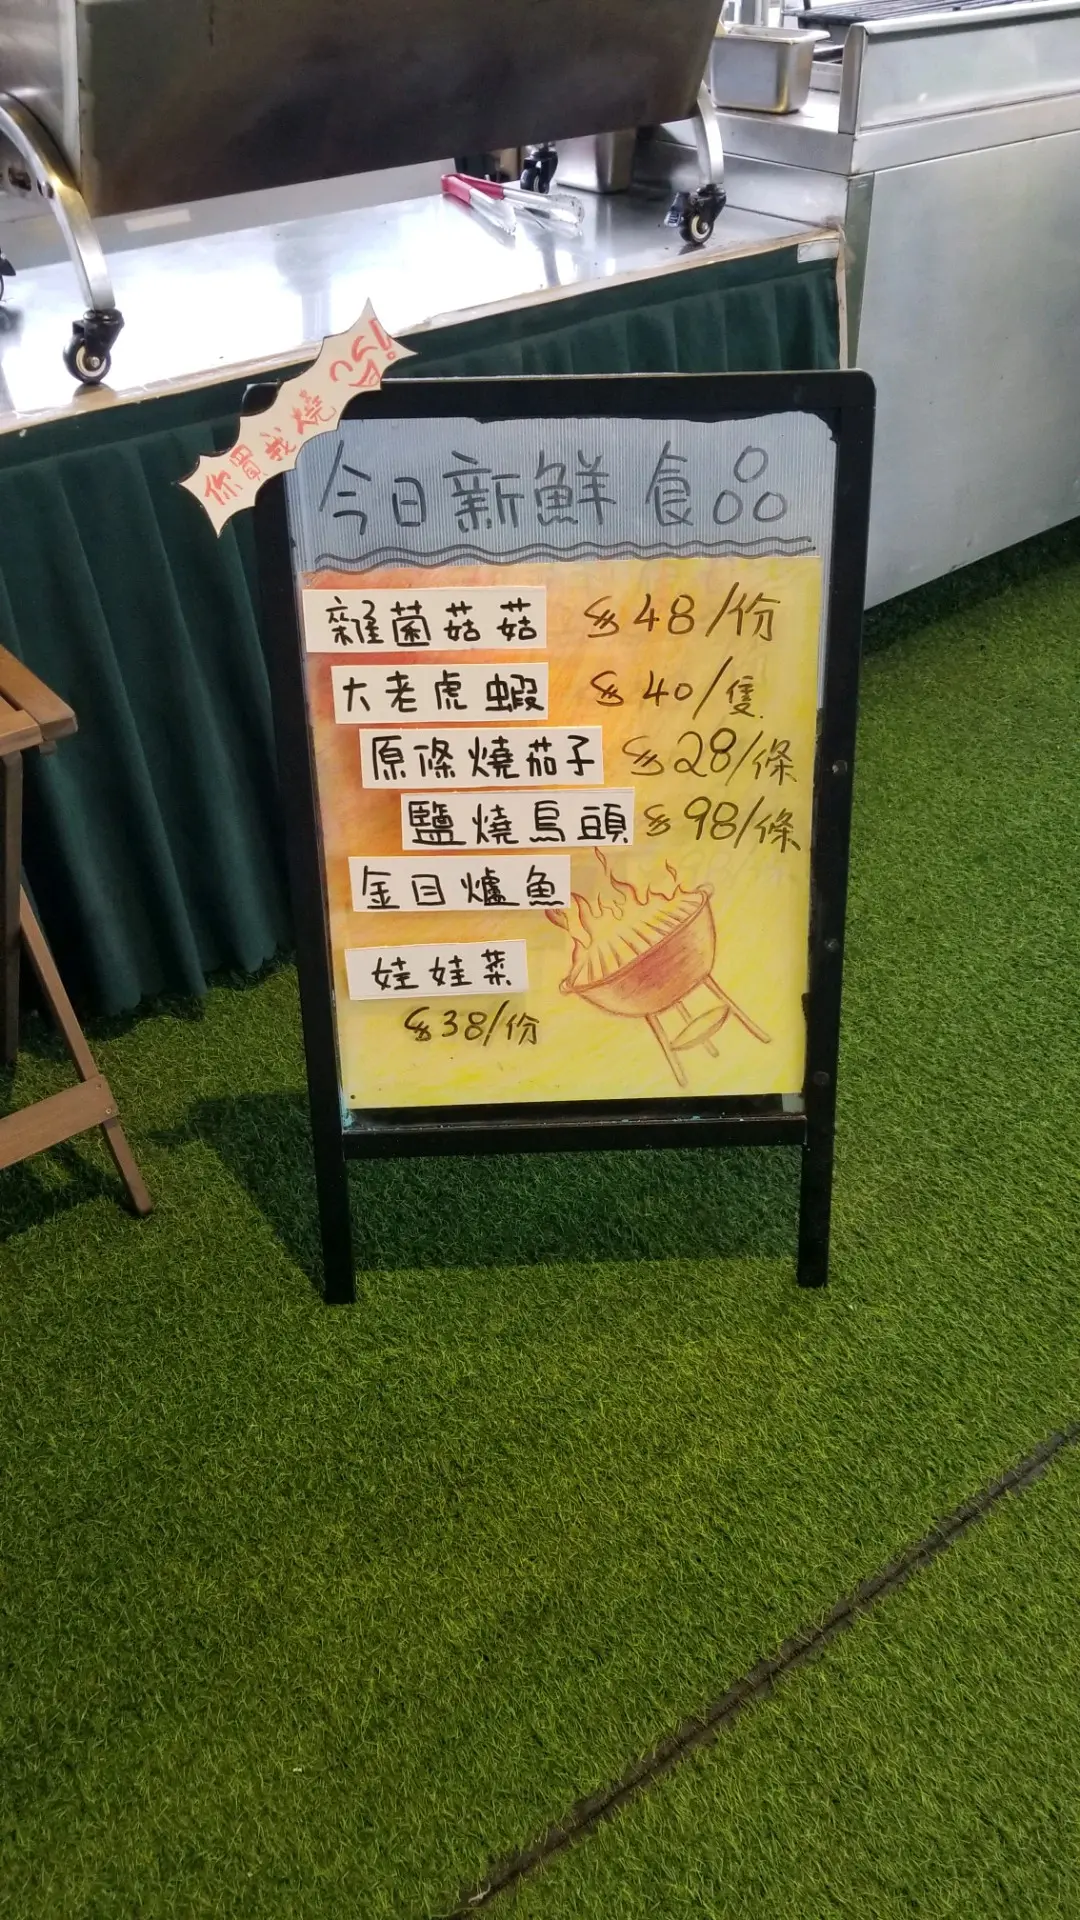 你買我燒
今日新鮮食品
雜菌菇菇 $48/份
大老虎蝦 $40/隻
原條燒茄子 $28/條
鹽燒烏頭 $98/條
金目爐魚
娃娃菜
$38/份